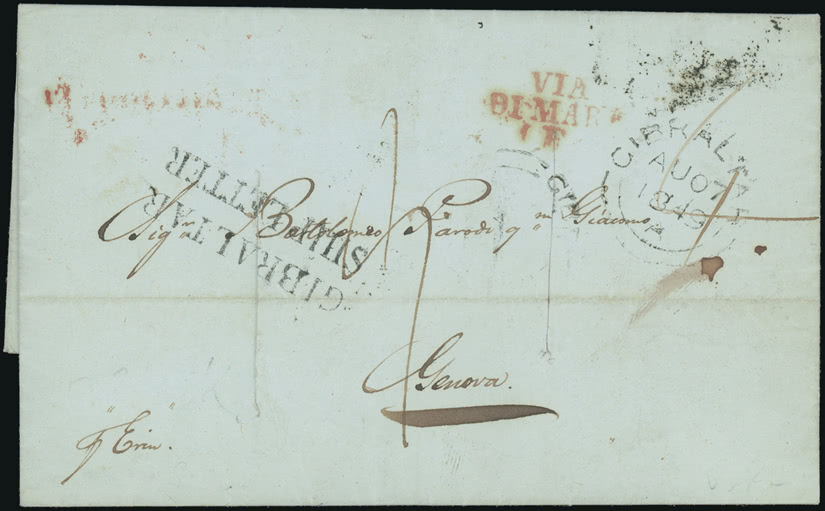 VIA
DI MARE
GIBRALTAR
AU 07
1849
A
GIBRALTAR
SHIP LETTER
Sigr. Bartolomeo Parodi qm. Giacomo
Genova.
p "Erin".